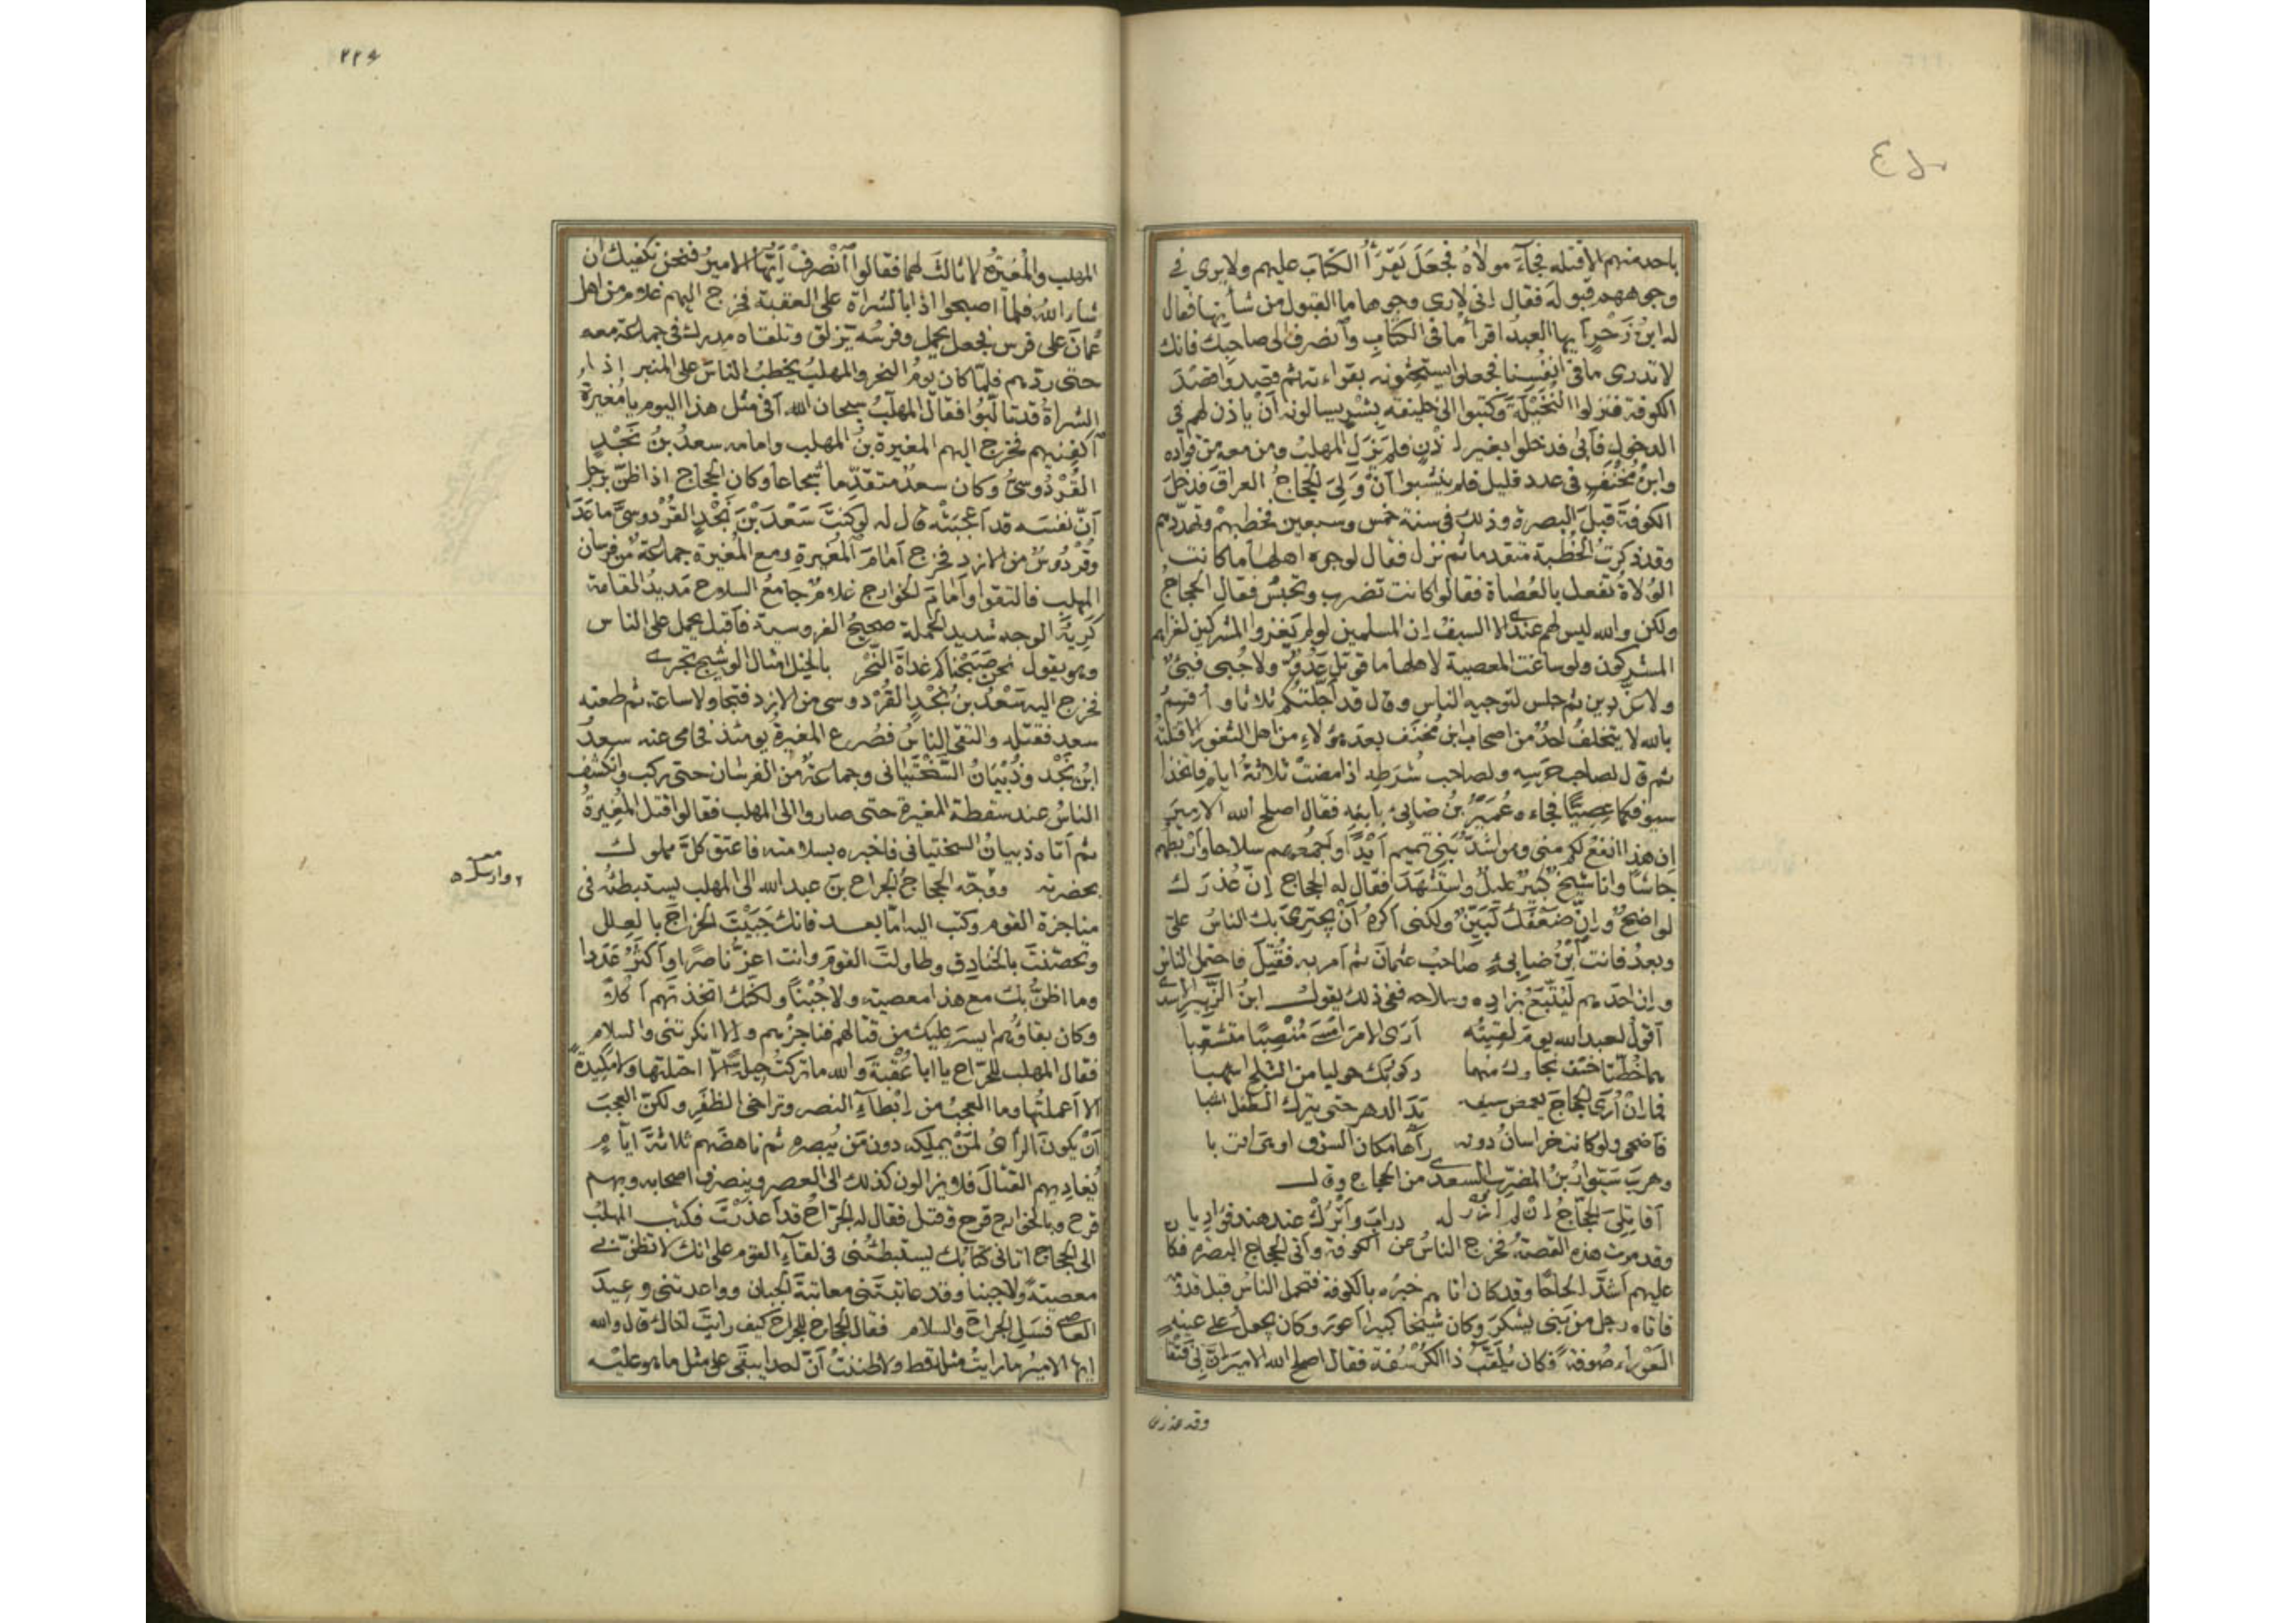 باحد منهم الا قتله فجآءَ مولاهُ فجَعَلَ يَقرَأُ الكتابَ عليهم ولا يرى فى
وجوههم قبوله فقال اِنى لارى وجوها ما القبول من شأنها فقال
له ابنُ زَحْرٍ ايها العبدُ اقرأ ما فى الكتابِ وآنصرف الى صاحبك فانك
لا تدرى ما فى انفُسِنا فجعلوا يستحثونه بقراءته ثم قصدوا قصْدَ
الكوفة فنزلوا النُخَيْلَة وكتبوا الى خليفة بِشْرٍ يسالونه آنْ ياذن لهم فى
الدخول فآبى فدخلوا بغير اذْنٍ فلم يَزَل المهلبُ ومن معه من قوآده
وابنُ مُخْنَفٍ فى عدد قليل فلم ينشَبوا آنْ وَلِىَ الحجاجُ العراقَ فدَخَلَ
الكوفةَ قبلَ البصرة وذلك فى سنة خمس وسبعين فخطبهمْ وتهدّدهم
وقد ذكرتُ الخُطبة متقدما ثم نزل فقال لوجوه اهلها ما كانت
الوُلاةُ تفعل بالعُصاة فقالوا كانت تضرب وتحبسُ فقال الحجاجُ
ولكن والله ليس لهم عندى الا السيفُ اِن المسلمين لو لم يَغزوا المشركين لغزاهم
المشركون ولو ساغت المعصية لاهلها ما قوتل عَدُوٌّ ولا جُبى فيئٌ
ولا عَزَّ دين ثم جلس لتوجيه الناس وقال قد اَجَّلتكُم ثلاثا واُقسِمُ
بالله لا يتخلفُ احدٌ من اصحاب ابن مُخنَف بعدَها ولا من اهل الثغور الا قتلتُه
ثم قال لصاحب حَرَسِه ولصاحب شُرَطِه اذا مضتْ ثلاثةُ ايام فاتخذا
سيوفكما عِصِيًّا فجاءه عُمَيْرُ بنُ ضابئ بابنِه فقال اصلح الله الاميرَ
اِن هذا انفعُ لكم منى وهو اشدُّ بَنِى تميم آيْدًا واَجْمَعُهم سلاحا واَرْبطُهم
جَاشًا وانا شيخ كبيرٌ عليلٌ واسْتشهَدَ فقال له الحجاج اِنّ عُذرَك
لواضحٌ واِنَّ ضَعْفَكَ لَبَيّنٌ ولكنى اَكرهُ آنْ يجترئَ بك الناسُ علىَّ
وبعدُ فانت ابْنُ ضابِئٍ صاحبُ عثمانَ ثم اَمر به فقُتِلَ فاحتمل الناسُ
واِن احدَهم لَيُتْبَعُ بزادِه وسلاحه ففى ذلك يقول ابنُ الزَّبِيرِ الاسدى
آقول لعبد الله يومَ لقيتُه آرَى الامرَ امْسَى مُنْصِبًا متشعّبا
هما خُطَّتا خسْف نجاوك منهما ركوبُك حوليا من الثلج اشهبا
فما اِنْ اَرَى الحجاجَ يغمض سيفه يَدَ الدهر حتى يترك الطفل اشيبا
فاضحى ولو كانت خراسانُ دونه رآها مكان السوق او هى اقربا
وهربَ سَوّارُ بنُ المضرّب السعدى من الحجاج وقال
آقاتِلِىَ الحجّاجُ اِنْ لم اَزُرْ له درابَ واَتْرُكْ عند هند فؤاديا
وقد مرت هذه القصةُ فخرج الناسُ عن الكوفة واَتى الحجاج البصره فكان
عليهم اشدَّ الحاحًا وقد كان اتاهم خبرُه بالكوفة فتحمل الناس قبل قدومه
فاتاه رجل من بَنِى يشكرَ وكان شيخا كبيرا اَعورَ وكان يجعلُ على عينِه
العَوْراء صُوفةً فكان يُلقَّبُ ذا الكُرْسُفة فقال اصلح الله الاميرَ اِنَّ بِى فتْقًا
وقد عذرنى
٢٢٤
المهلب والمُغيرة لا ثالثَ لهما فقالوا اَنْصَرِفْ اَيّها الامير فنحن نكفيك ان
شاء الله فلمآ اصبحوا اذا بالشُراة على العقبة فخرج اليهم غلام من اهل
عُمانَ على فرس فجعل يحمل وفرسُه يَزلق وتلقاه مدرك فى جماعة معه
حتى ردهم فلمّا كان يومُ النحر والمهلبُ يخطبُ الناسَ على المنبر اذا
الشراةُ قد تالَّبُوا فقال المهلّبُ سبحان الله آفى مثل هذا اليوم يا مُغيرةُ
آكفِنيهم فخرج اليهم المغيرة بنُ المهلب وامامه سعدُ بنُ نَجْدٍ
القُرْدُوسِىُّ وكان سعدٌ متقدّما شجاعا وكان الحجاج اذا ظنّ برَجل
آنّ نفسَه قد آعجبَتْه قال له لو كنتَ سَعْدَ بْنَ نَجْدٍ القُرْدوسىَّ ما عَدَا
وقُرْدُوسٌ من الازد فخرج اَمامَ المُغيرةِ ومع المُغيرة جماعةٌ من فرسان
المهلب فالتقوا وآمامَ الخوارج غلامٌ جامعُ السلاح مَديدُ القامة
كَريهُ الوجه شديد الحملة صحيحُ الفروسية فآقبل يحمل على الناس
وهو يقول نحن صَبَحْناكم غداةَ النَّحْر بالخيل امثال الوشيج تجرى
فخرج اليه سَعْدُ بنُ نَجْدٍ القُرْدوسى من الازد فتجاولا ساعة ثم طعنه
سعد فقتله والتقى الناسُ فصُرع المغيرةُ يومئذ فحامى عنه سعدُ
ابْنُ نَجْد وذُبْيَانُ السَّخْتيانى وجماعةٌ من الفرسان حتى ركب وانكشف
الناسُ عند سقطة المغيرة حتى صاروا الى المهلب فقالوا قتل المُغِيرةُ
ثم آتاه ذبيانُ السختيانى فاخبره بسلامته فاعتق كلَّ مملوك
بحضرته ووجّه الحجاجُ الجراح بنَ عبد الله الى المهلب يستبطئه فى
مناجزة القوم وكتب اليه امّا بعد فانك جَبَيْتَ الخراجَ بالعِلل
وتحصّنتَ بالخنادق وطاولتَ القومَ وانت اعزُّ ناصرًا وآكثَرُ عَدَدا
وما اظنُّ بك مع هذا معصيته ولا جُبْنًا ولكنّك اتخذتهم آكلًا
وكان بقاؤهم ايسرَ عليك من قتالهم فناجزْهم والا انكرتنى والسلام
فقال المهلب للجرّاح يا ابا عُقْبةَ والله ما تركتُ حيلةً الّا احتلتها ولا مَكيدةً
الا آعملتُها وما العجبُ من اِبْطآءِ النصر وتراخى الظَفَرِ ولكنّ العجبَ
آنْ يكونَ الرأىُ لمَنْ يملِكه دون مَن يُبصره ثم ناهضَهم ثلاثةَ ايّامٍ
يُغاديهم القتالَ فلا يزالون كذلك الى العصر وينصرف اصحابه وبهم
قرح وبالخوارج قرح وقتل فقال له الجرّاحُ قد آعذرْتَ فكتب المهلبُ
الى الحجاج اتانى كتابُك يستبطئُنى فى لقآءِ القوم على انك لا تظنّ بى
معصيةً ولا جبنا وقد عاتبتَنى معاتبةَ الجبان وواعدتنى وعيدَ
العاصى فسَلِ الجراحَ والسلام فقال الحجاج للجراح كيف رايتَ اخاك قال والله
ايها الامير ما رايتُ مثله قط ولا ظننتُ آنّ احدا يبقَى على مثل ما هو عليه